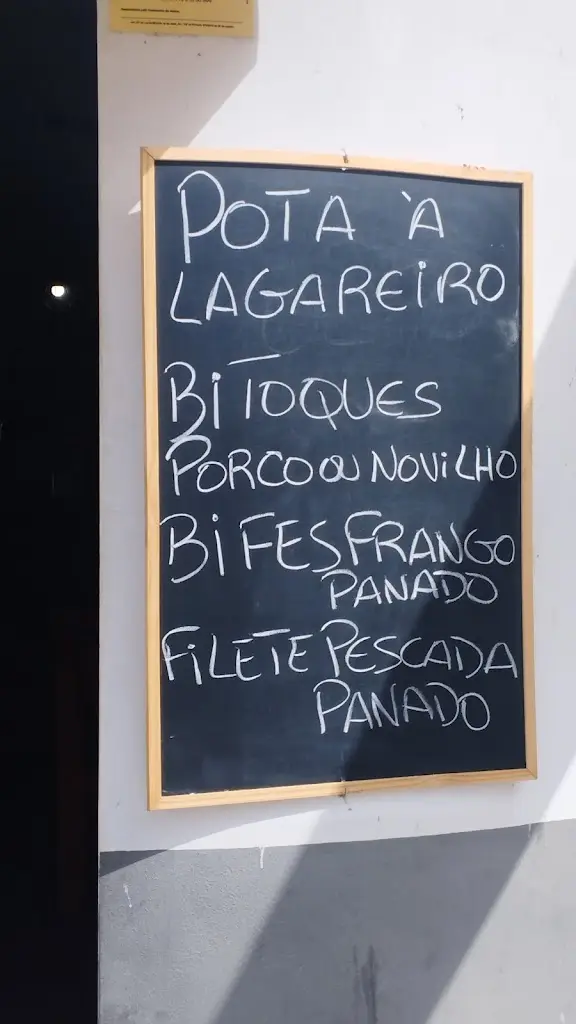 POTA À
LAGAREIRO
BITOQUES
PORCO OU NOVILHO
BIFES FRANGO
PANADO
FILETE PESCADA
PANADO